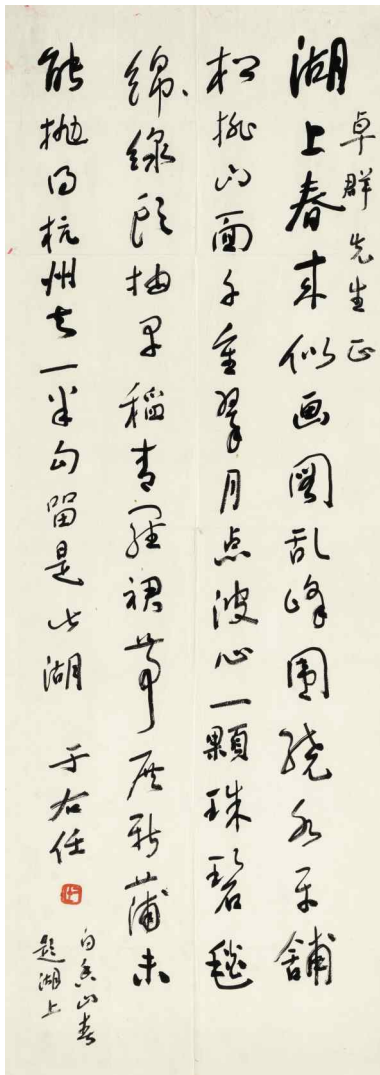 卓群先生正
湖上春来似画圖乱峰圍繞水平舖
松排山面千重翠月点波心一顆珠碧毯
綿線頭抽早稻青羅裙帶展新蒲未
能抛得杭州去一半勾留是此湖 于右任
白香山春
題湖上